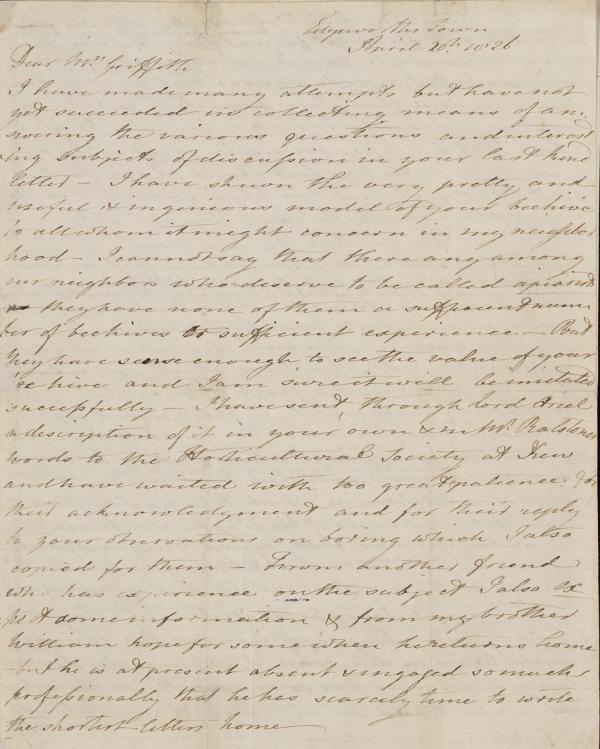 Edgeworths Town
April 20th 1826
Dear Mrs Griffith
I have made many attempts but have not
yet succeeded in collecting means of an-
swering the various questions and interest
ing subjects of discussion in your last kind
letter – I have shewn the very pretty and
useful & ingenious model of your beehive
to all whom it might concern in my neighbor
hood – I cannot say that there any among
our neighbors who deserve to be called apiarists
they have none of them a sufficient num
ber of beehives or sufficient experience – But
they have sense enough to see the value of your
Bee hive and I am sure it will be imitated
successfully – I have sent through Lord Oriel
a discription of it in your own & in Mr. Ralstons
words to the Horticultural Society at Kew
and have waited with too great patience for
their acknowledgment and for their reply
to your observations on boring which I also
copied for them – From another friend
who has experience on the subject I also ex
pect some information & from my brother
William hope for some when he returns home
– but he is at present absent & engaged so much
professionally that he has scarcely time to write
the shortest letters home –